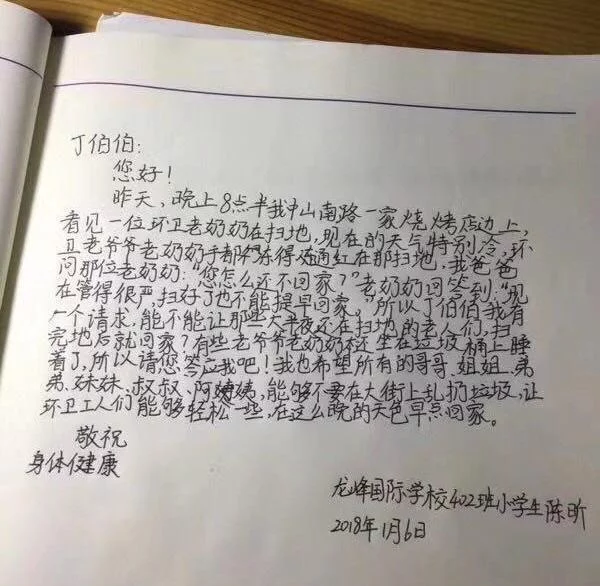 丁伯伯:
您好!
昨天,晚上8点半我中山南路一家烧烤店边上,
看见一位环卫老奶奶在扫地,现在的天气特别冷,环
卫老爷爷老奶奶手都冻得通红在那扫地,我爸爸
问那位老奶奶:“您怎么还不回家?”老奶奶回答到:“现
在管得很严,扫好了也不能提早回家。”所以丁伯伯我有
一个请求,能不能让那些大半夜还在扫地的老人们,扫
完地后就回家?有些老爷爷老奶奶还坐在垃圾桶上睡
着了,所以请您答应我吧!我也希望所有的哥哥、姐姐、弟
弟、妹妹、叔叔、阿姨,能够不要在大街上乱扔垃圾,让
环卫工人们能够轻松一些,在这么晚的天色早点回家。
敬祝
身体健康
龙峰国际学校402班小学生陈昕
2018年1月6日